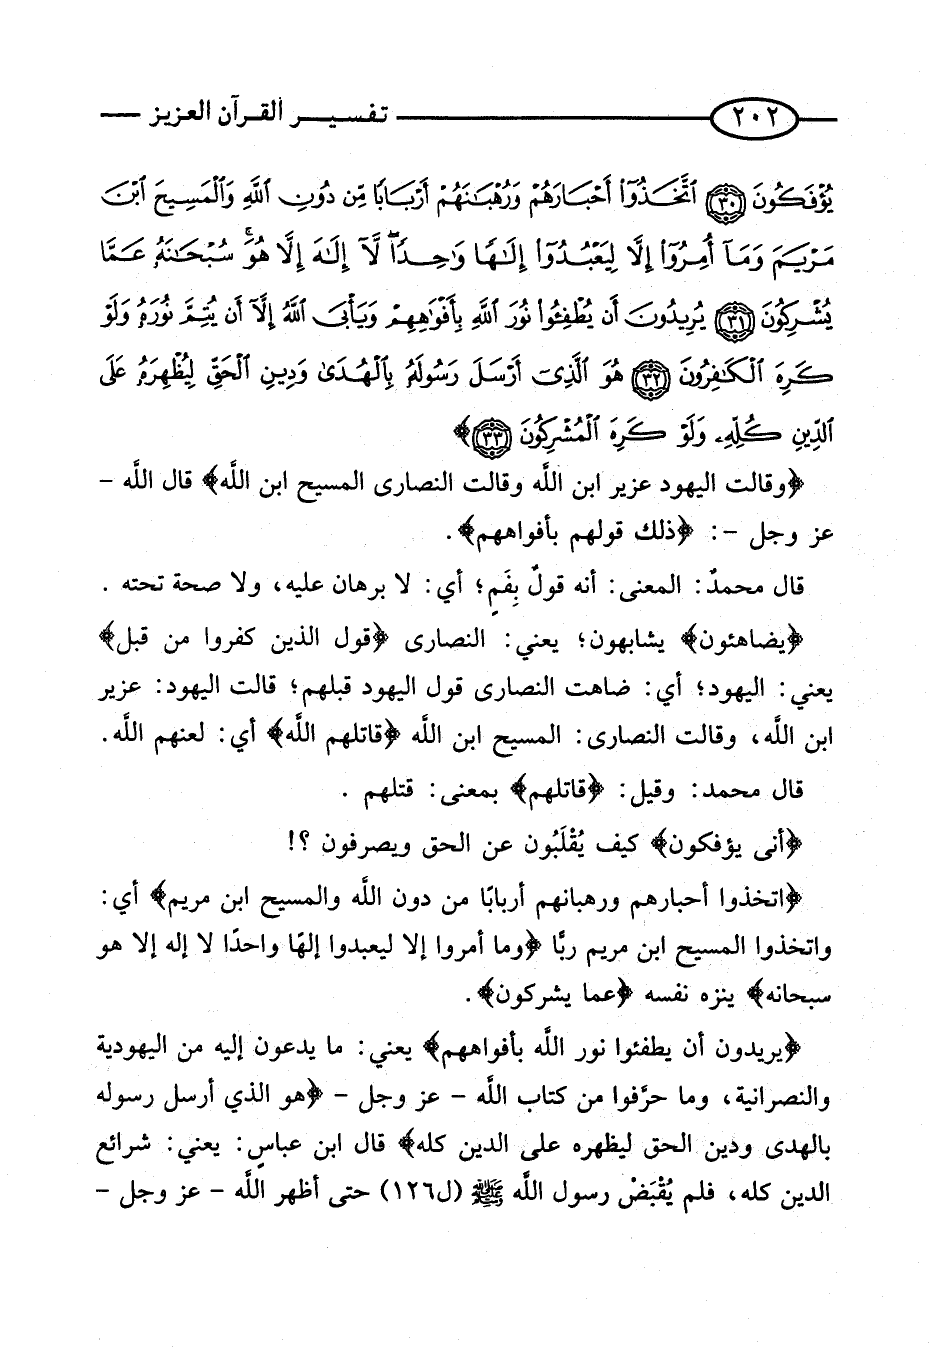 ٢٠٢ تفسير القرآن العزيز
يُؤْفَكُونَ ٣٠ ٱتَّخَذُوٓا۟ أَحْبَارَهُمْ وَرُهْبَٰنَهُمْ أَرْبَابًا مِّن دُونِ ٱللَّهِ وَٱلْمَسِيحَ ٱبْنَ
مَرْيَمَ وَمَآ أُمِرُوٓا۟ إِلَّا لِيَعْبُدُوٓا۟ إِلَٰهًا وَٰحِدًا ۖ لَّآ إِلَٰهَ إِلَّا هُوَ ۚ سُبْحَٰنَهُۥ عَمَّا
يُشْرِكُونَ ٣١ يُرِيدُونَ أَن يُطْفِـُٔوا۟ نُورَ ٱللَّهِ بِأَفْوَٰهِهِمْ وَيَأْبَى ٱللَّهُ إِلَّآ أَن يُتِمَّ نُورَهُۥ وَلَوْ
كَرِهَ ٱلْكَٰفِرُونَ ٣٢ هُوَ ٱلَّذِىٓ أَرْسَلَ رَسُولَهُۥ بِٱلْهُدَىٰ وَدِينِ ٱلْحَقِّ لِيُظْهِرَهُۥ عَلَى
ٱلدِّينِ كُلِّهِۦ وَلَوْ كَرِهَ ٱلْمُشْرِكُونَ ٣٣﴾
﴿وقالت اليهود عزير ابن اللَّه وقالت النصارى المسيح ابن اللَّه﴾ قال اللَّه –
عز وجل –: ﴿ذلك قولهم بأفواههم﴾.
قال محمدٌ: المعنى: أنه قولٌ بِفَمٍ؛ أي: لا برهان عليه، ولا صحة تحته .
﴿يضاهئون﴾ يشابهون؛ يعني: النصارى ﴿قول الذين كفروا من قبل﴾
يعني: اليهود؛ أي: ضاهت النصارى قول اليهود قبلهم؛ قالت اليهود: عزير
ابن اللَّه، وقالت النصارى: المسيح ابن اللَّه ﴿قاتلهم اللَّه﴾ أي: لعنهم اللَّه.
قال محمد: وقيل: ﴿قاتلهم﴾ بمعنى: قتلهم .
﴿أنى يؤفكون﴾ كيف يُقْلَبُون عن الحق ويصرفون ؟!
﴿اتخذوا أحبارهم ورهبانهم أربابًا من دون اللَّه والمسيح ابن مريم﴾ أي:
واتخذوا المسيح ابن مريم ربًّا ﴿وما أمروا إلا ليعبدوا إلهًا واحدًا لا إله إلا هو
سبحانه﴾ ينزه نفسه ﴿عما يشركون﴾.
﴿يريدون أن يطفئوا نور اللَّه بأفواههم﴾ يعني: ما يدعون إليه من اليهودية
والنصرانية، وما حرَّفوا من كتاب اللَّه – عز وجل – ﴿هو الذي أرسل رسوله
بالهدى ودين الحق ليظهره على الدين كله﴾ قال ابن عباسٍ: يعني: شرائع
الدين كله، فلم يُقْبَضْ رسول اللَّه ﷺ (ل١٢٦) حتى أظهر اللَّه – عز وجل –